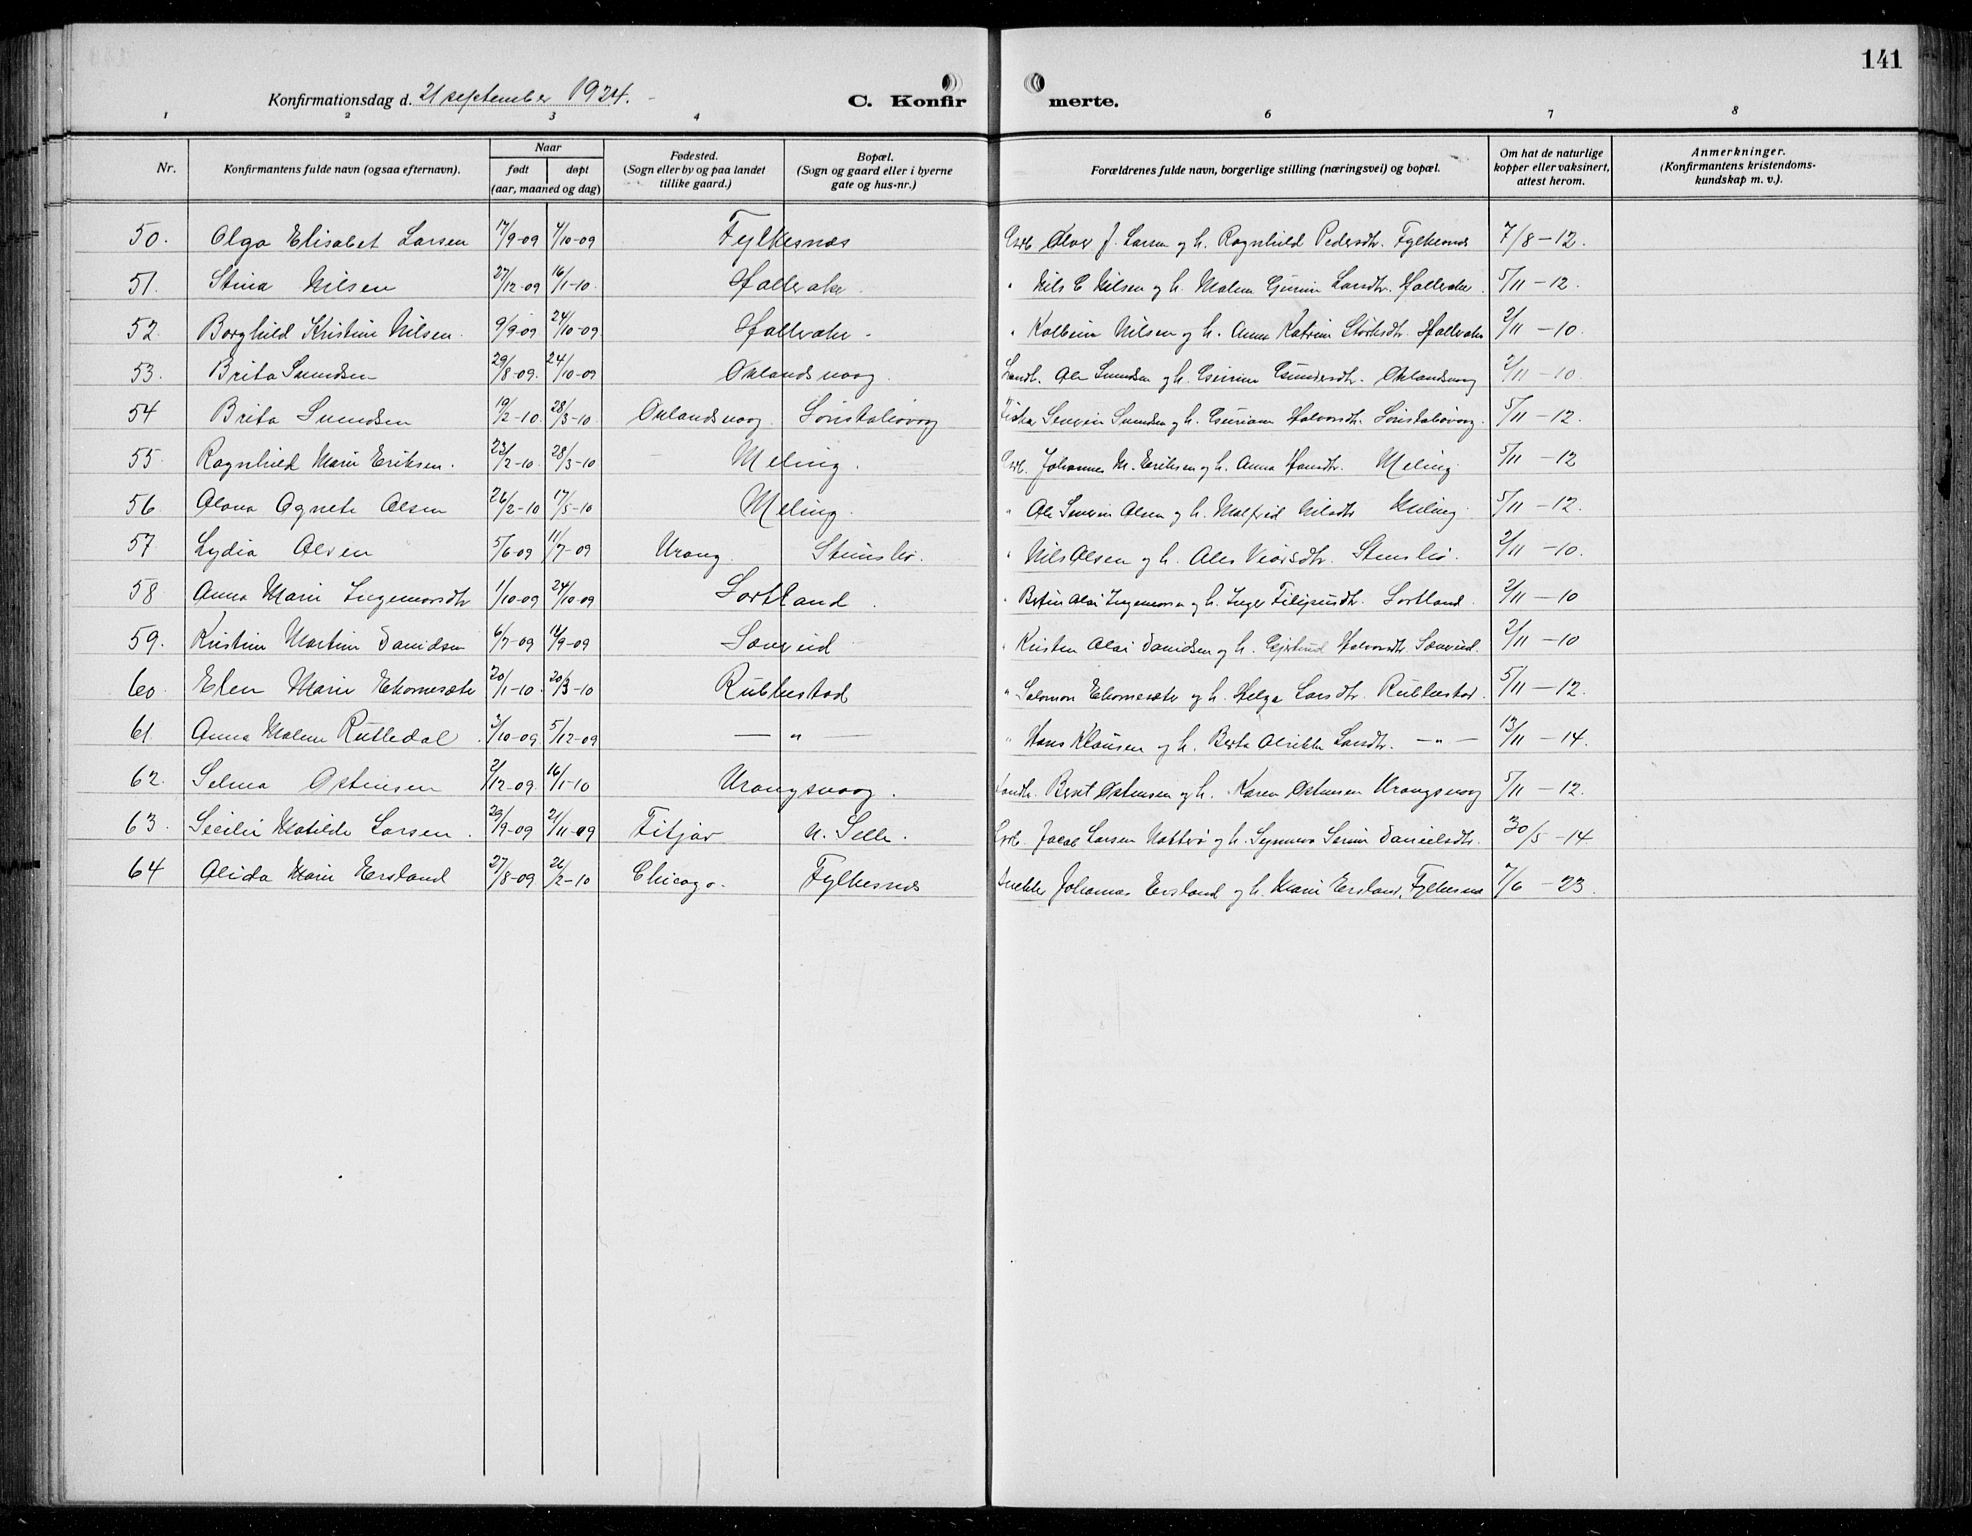 141
Konfirmationsdag d. 21 september 1924.
C. Konfir merte.
1 2 3 4 6 7 8
Nr. Konfirmantens fulde navn (ogsaa efternavn). Naar født døpt (aar, maaned og dag) Fødested. (Sogn eller by og paa landet tillike gaard.) Bopæl. (Sogn og gaard eller i byerne gate og hus-nr.) Forældrenes fulde navn, borgerlige stilling (næringsvei) og bopæl. Om hat de naturlige kopper eller vaksinert, attest herom. Anmerkninger. (Konfirmantens kristendoms-kundskap m. v.).
50. Olga Elisabet Larsen 17/9-09 4/10-09 Fylkesnes J. Larsen og h. Ragnhild Pedersdtr. Fylkesnes 7/8-12.
51. Stina Nilsen 27/12-09 16/1-10. Hallvaker " Nils C Nilsen og h. Malene Larsdtr. Hallvaker. 5/11-12.
52 Borghild Kristine Nilsen. 9/9-09 24/10-09 Hallvaker. " Nilsen og h. Anna Katrine Hallvaker 2/11-10.
53. Brita Simdsen 29/8-09. 24/10-09 Oklandsvaag. og h. Oklandsvaag 2/11-10.
54 Brita 19/2-10. 28/3-10 Oklandsvaag og h. Halvorsdtr. 5/11-12.
55. Ragnhild Marie Eriksen. 23/2-10. 28/3-10 Meling. Johannes M. Eriksen og h. Anna Hansdtr. Meling. 5/11-12
56 Agnete Olsen 26/2-10 17/5-10 Meling. " Ole Severin Olsen og h. Malfrid Nilsdtr Meling. 5/11-12.
57 Lydia Olsen 5/6-09 11/7-09 Urang. Stensbø. " Nils Olsen og h. Stensbø. 2/11-10.
58 Anna Marie Ingemarsdtr 1/10-09 24/10-09 Sortland. " og h. Inger Sortland. 2/11-10
59. Kristine Martine Davidsen 6/7-09 /9-09 " Kristen Olai Davidsen og h. Gjertrud Halvorsdtr. 2/11-10
60. Elen Marie Ekornesæter 20/1-10. 20/3-10 Rubbestad " Salomon Ekornesæter og h. Helga Larsdtr. Rubbestad. 5/11-12.
61. Anna Malene Rutledal. 3/10-09 5/12-09 — " — " Hans Klausen og h. Berta Olrikke Larsdtr. — " — 13/11-14.
62. Selma Ostensen 2/12-09. 16/1-10 Urangsvaag. Landh. Bernt Ostensen og h. Karen Ostensen Urangsvaag 5/11-12.
63. Secilie Matilde Larsen. 29/9-09 21/11-09 Fitjar N. Selle. Jacob Larsen og h. Synneva Serine Danielsdtr. 30/5-14
64 Alida Marie Ersland 27/8-09 26/2-10 Chicago. Fylkesnes Snekker Johannes Ersland og h. Marie Ersland, Fylkesnes 7/6-23.